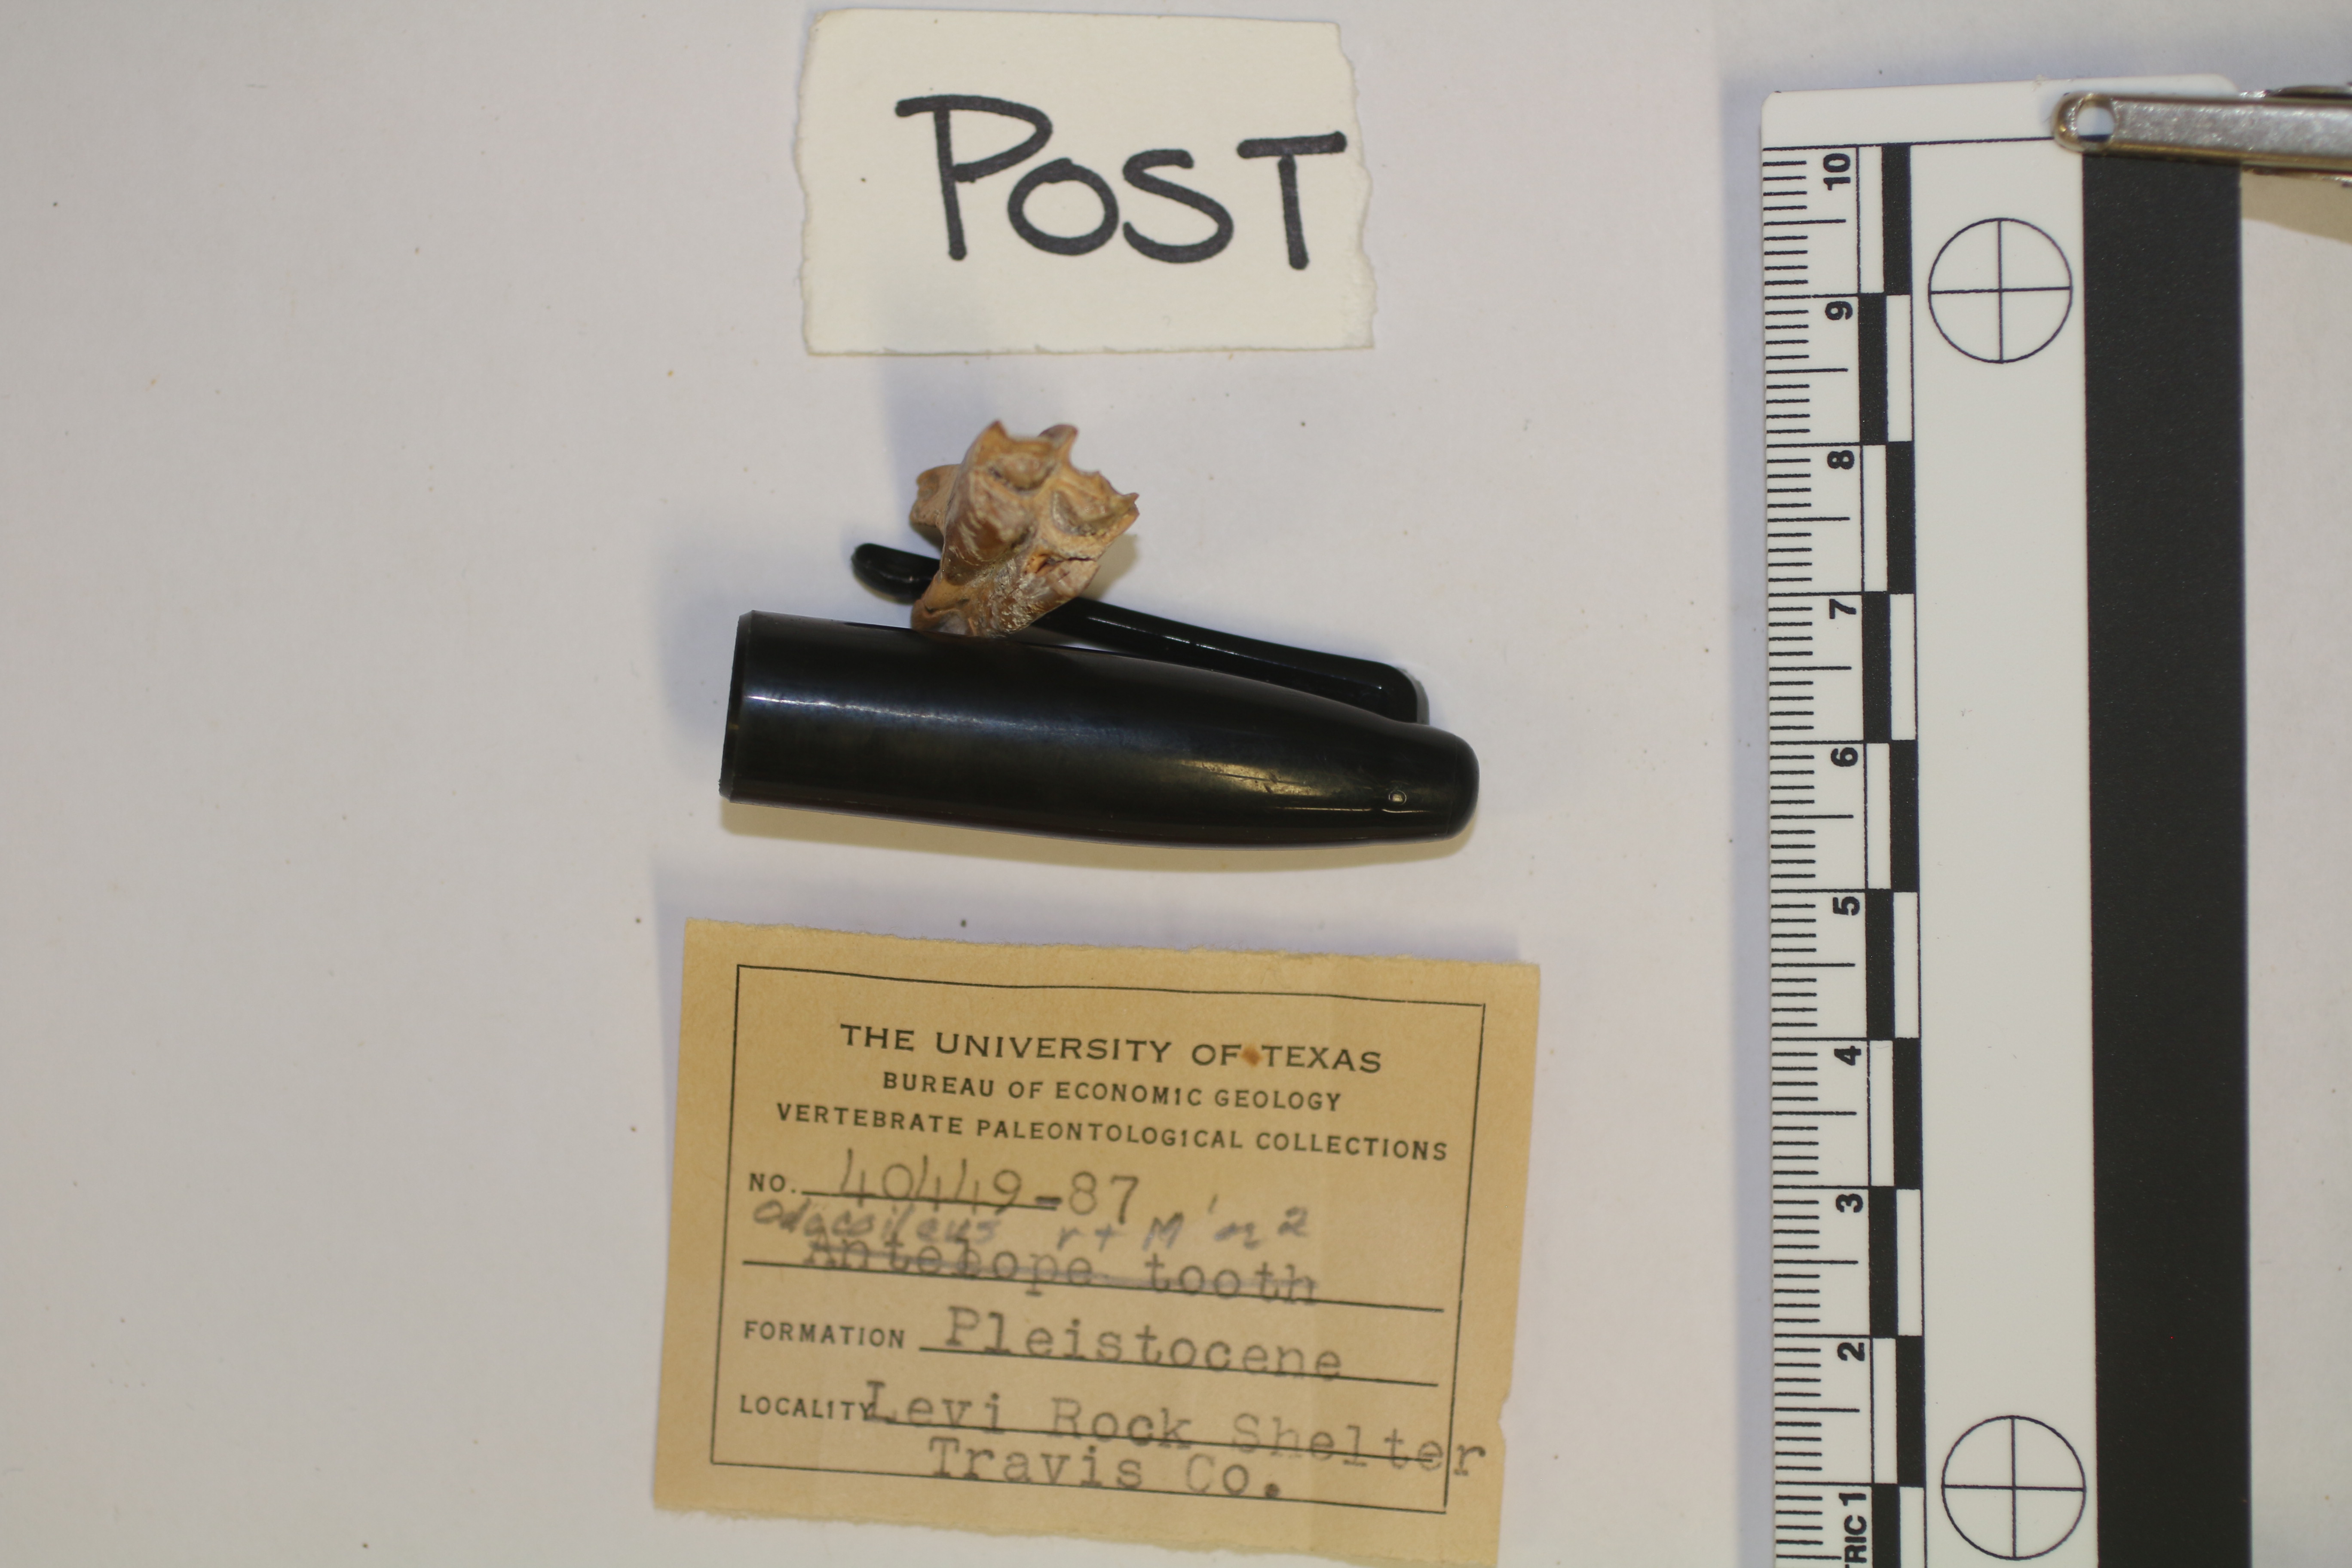 POST
THE UNIVERSITY OF TEXAS
BUREAU OF ECONOMIC GEOLOGY
VERTEBRATE PALEONTOLOGICAL COLLECTIONS
NO. 40449-87
Odocoileus rt M 1 or 2
Antelope tooth
FORMATION Pleistocene
LOCALITY Levi Rock Shelter
Travis Co.
10
9
8
7
6
5
4
3
2
TRIC 1